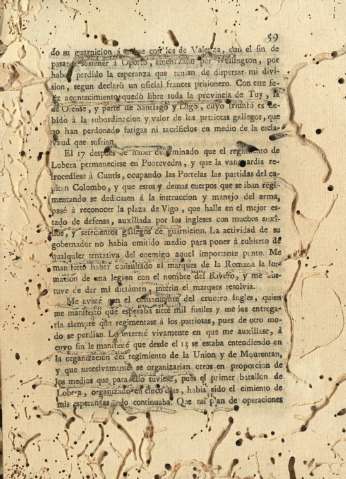 59
do su guarnicion á unirse con los de Valenza, con el fin de
pasar á sostener á Oporto, amenazado por Wellington, por
haber perdido la esperanza que tenian de dispersar mi divi-
sion, segun declaró un oficial frances prisionero. Con este fe-
liz acontecimiento quedó libre toda la provincia de Tuy, la
de Orense, y parte de Santiago y Lugo, cuyo triunfo es de-
bido á la subordinacion y valor de las patriotas gallegos, que
no han perdonado fatigas ni sacrificios en medio de la escla-
vitud que sufrian.
El 17 despues de haber determinado que el regimiento de
Lobera permaneciese en Pontevedra, y que la vanguardia re-
trocediese á Cuntis, ocupando las Portelas las partidas del ca-
pitan Colombo, y que estos y demas cuerpos que se iban regi-
mentando se dedicasen á la instruccion y manejo del arma,
pasé á reconocer la plaza de Vigo, que halle en el mejor es-
tado de defensa, auxiliada por los ingleses con muchos auxi-
lios, y seiscientos gallegos de guarnicion. La actividad de su
gobernador no habia omitido medio para poner á cubierto de
qualquier tentativa del enemigo aquel importante punto. Me
manifestó haber consultado al marques de la Romana la for-
macion de una legion con el nombre del Ribero, y me abs-
tuve de dar mi dictámen, interin el marques resolvia.
Me avisté con el comandante del crucero ingles, quien
me manifestó que esperaba siete mil fusiles y me los entrega-
ria siempre que regimentase á los patriotas, pues de otro mo-
do se perdian. Le interné vivamente en que me auxiliase, á
cuyo fin le manifesté que desde el 15 se estaba entendiendo en
la organizacion del regimiento de la Union y de Mourentan,
y que sucesivamente se organizarian otros en proporcion de
los medios que para ello tuviese, pues el primer batallon de
Lobera, organizado en cinco dias, habia sido el cimiento de
mis esperanzas, y lo continuaba. Que mi plan de operaciones